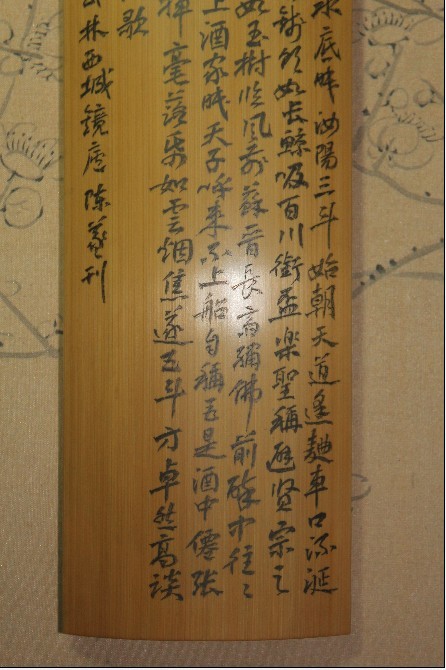 水底眠汝陽三斗始朝天道逢麯車口流涎
錢飲如長鯨吸百川銜盃楽聖稱避贤宗之
如玉樹臨风前蘇晉長齋繡佛前醉中往〻
上酒家眠天子呼来不上船自稱臣是酒中僊張
揮毫落紙如雲烟焦遂五斗方卓然高談
歌
林西城鏡廬陳義刊